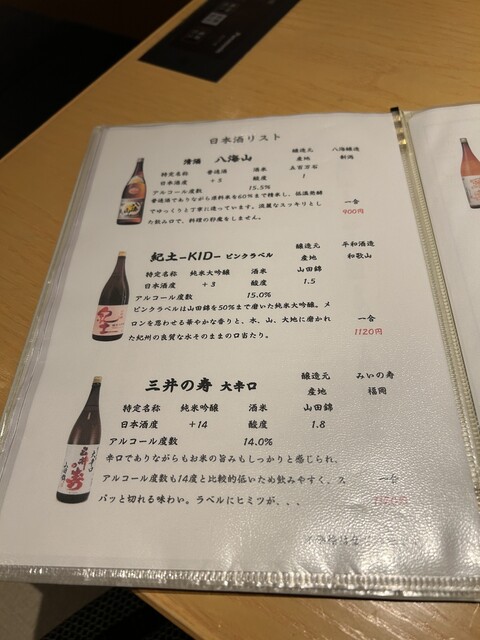 日本酒リスト
清酒 八海山 醸造元 八海醸造
産地 新潟
特定名称 普通酒 酒米 五百万石
日本酒度 +5 酸度 1
アルコール度数 15.5%
普通酒でありながら原料米を60%まで精米し、低温発酵
でゆっくりと丁寧に造っています。淡麗なスッキリとし
た飲み口で、料理の邪魔をしません。
一合
900円
紀土-KID- ピンクラベル 醸造元 平和酒造
産地 和歌山
特定名称 純米大吟醸 酒米 山田錦
日本酒度 +3 酸度 1.5
アルコール度数 15.0%
ピンクラベルは山田錦を50%まで磨いた純米大吟醸。メ
ロンを思わせる華やかな香りと、水、山、大地に磨かれ
た紀州の良質な水そのままの口当たり。
一合
1120円
三井の寿 大辛口 醸造元 みいの寿
産地 福岡
特定名称 純米吟醸 酒米 山田錦
日本酒度 +14 酸度 1.8
アルコール度数 14.0%
辛口でありながらもお米の旨みもしっかりと感じられ、
アルコール度数も14度と比較的低いため飲みやすく、ス
パッと切れる味わい。ラベルにヒミツが、、、
一合